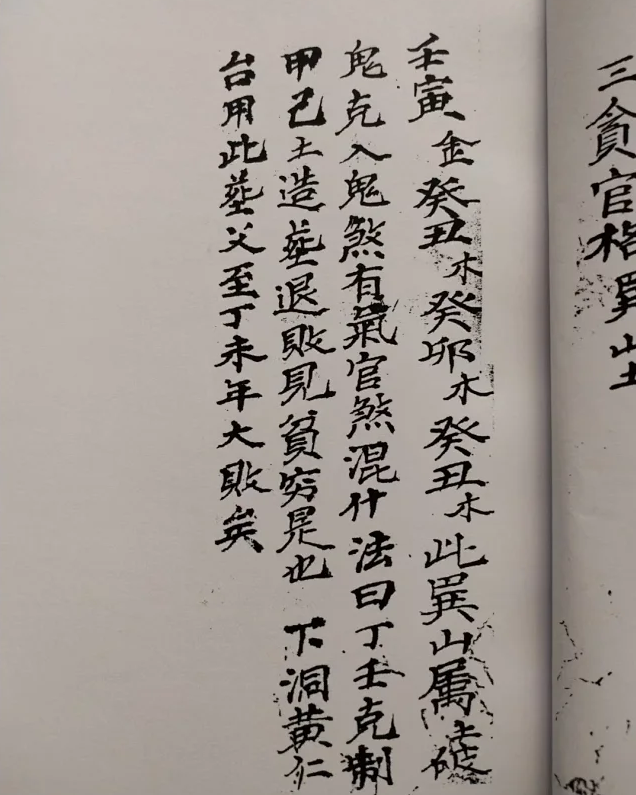 三貪官格巽山土
壬寅金癸丑木癸卯水癸丑木此巽山属土破
鬼克入鬼煞有氣官煞混什法曰丁壬克制
甲己土造塟退敗見貧穷是也下洞黄仁
台用此塟父至丁未年大敗矣